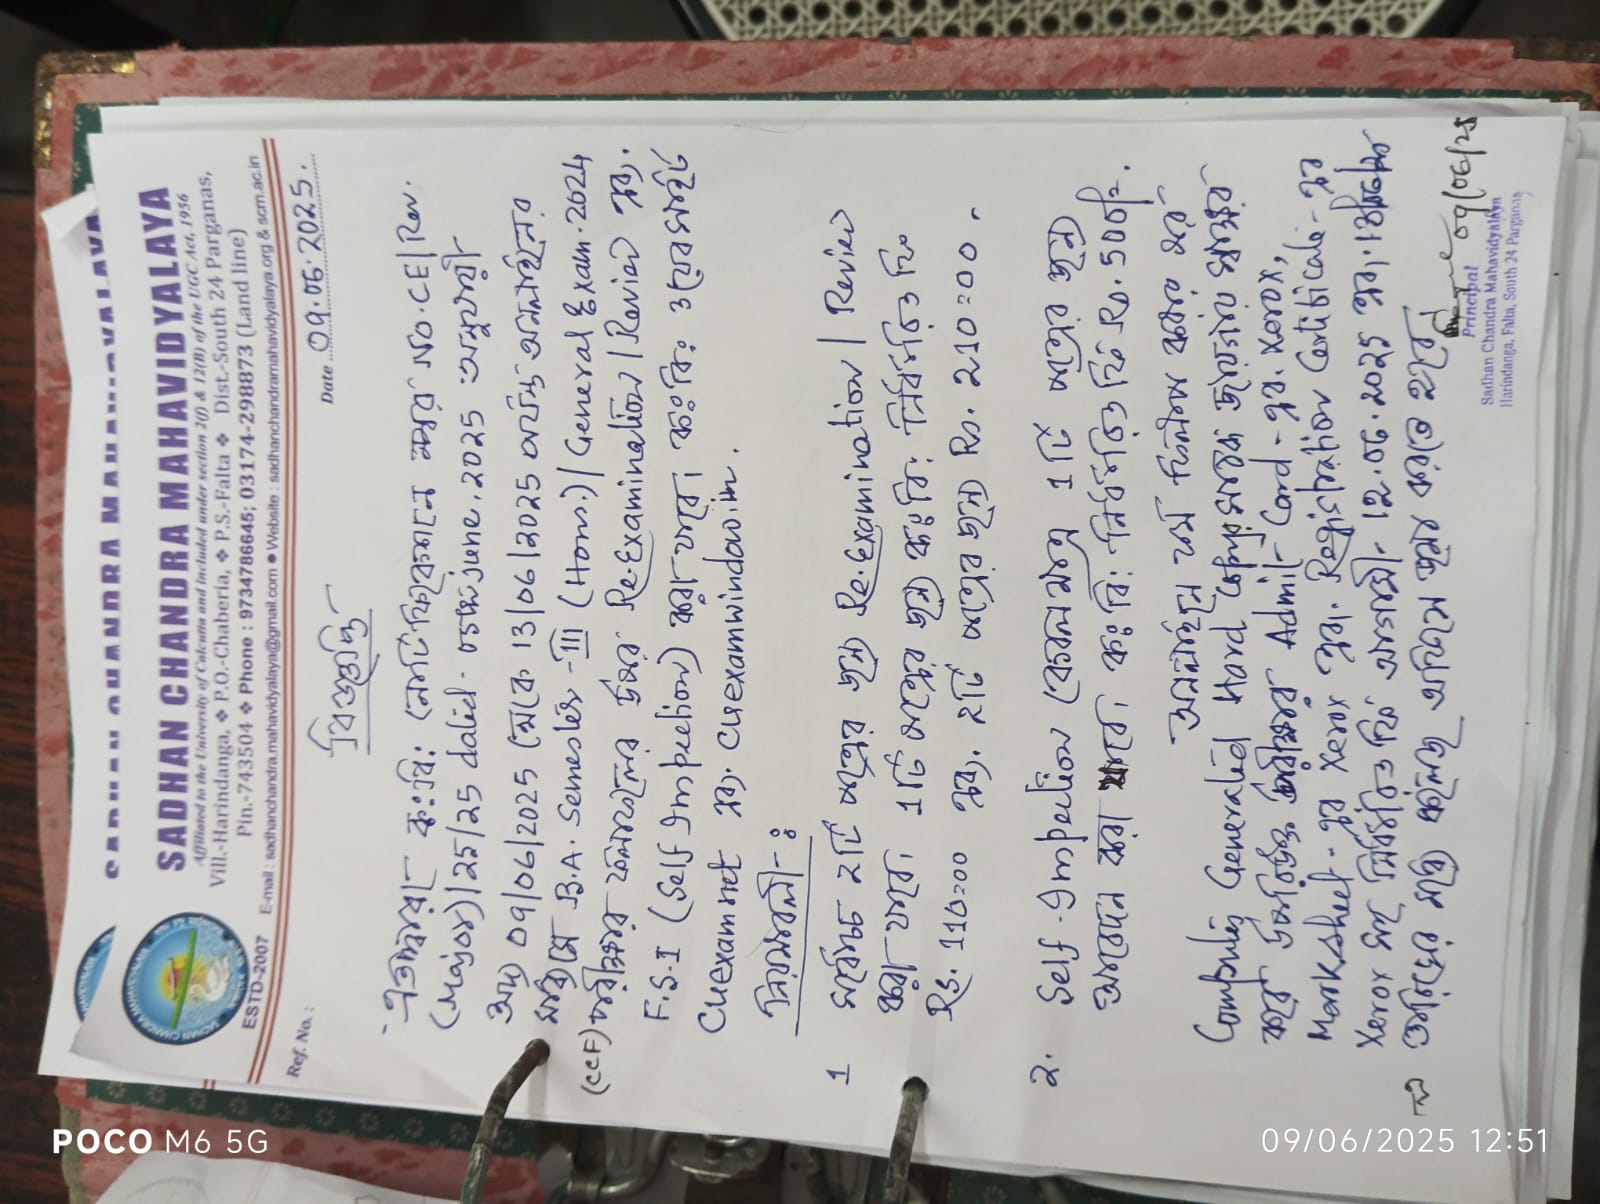 SADHAN CHANDRA MAHAVIDYALAYA
SADHAN CHANDRA MAHAVIDYALAYA
Affiliated to the University of Calcutta and included under section 2(f) & 12(B) of the UGC Act, 1956
Vill.-Harindanga, ❖ P.O.-Chaberia, ❖ P.S.-Falta ❖ Dist.-South 24 Parganas,
Pin.-743504 ❖ Phone : 9734786645; 03174-298873 (Land line)
ESTD-2007 E-mail : sadhanchandra.mahavidyalaya@gmail.com ● Website : sadhanchandramahavidyalaya.org & scm.ac.in
Ref. No. : Date 09.06.2025.
বিজ্ঞপ্তি
এতদ্বারা ক:বি: নোটিফিকেশন নম্বর NO.CE/Rev.
(Major)/25/25 dated- june.2025 অনুযায়ী
09/06/2025 থেকে 13/06/2025 পর্যন্ত অনলাইনের
মাধ্যমে B.A. Semester-III (Hons.)/General Exam.2024
(CCF) পরীক্ষার ফলাফলের উপর Re.Examination/Review এবং
F.S.I (Self Inspection) করা যাবে। ক:বি: ওয়েবসাইট
Cuexam.net এবং Cuexamwindow.in.
নিয়মাবলী-:
1 সর্বাধিক 2টি পত্রের জন্য Re.Examination/Review
করা যাবে। 1টি পত্রের জন্য ক:বি: নির্ধারিত ফি
Rs. 110=00 এবং 2টি পত্রের জন্য Rs. 210=00.
2. Self-Inspection কেবলমাত্র 1টি পত্রের জন্য
আবেদন করা যাবে। ক:বি: নির্ধারিত ফি Rs. 500/=.
অনলাইনে ফর্ম ফিলাপ করার পর
Computer Generated Hard Copy
Admit-Card-এর Xerox,
Marksheet-এর Xerox এবং Registration Certificate-এর
Xerox সহ নির্ধারিত ফি 12.06.2025
তারিখের মধ্যে কলেজ অফিসে জমা করতে হবে
09/06/25
Principal
Sadhan Chandra Mahavidyalaya
Harindanga, Falta, South 24 Parganas
POCO M6 5G
09/06/2025 12:51